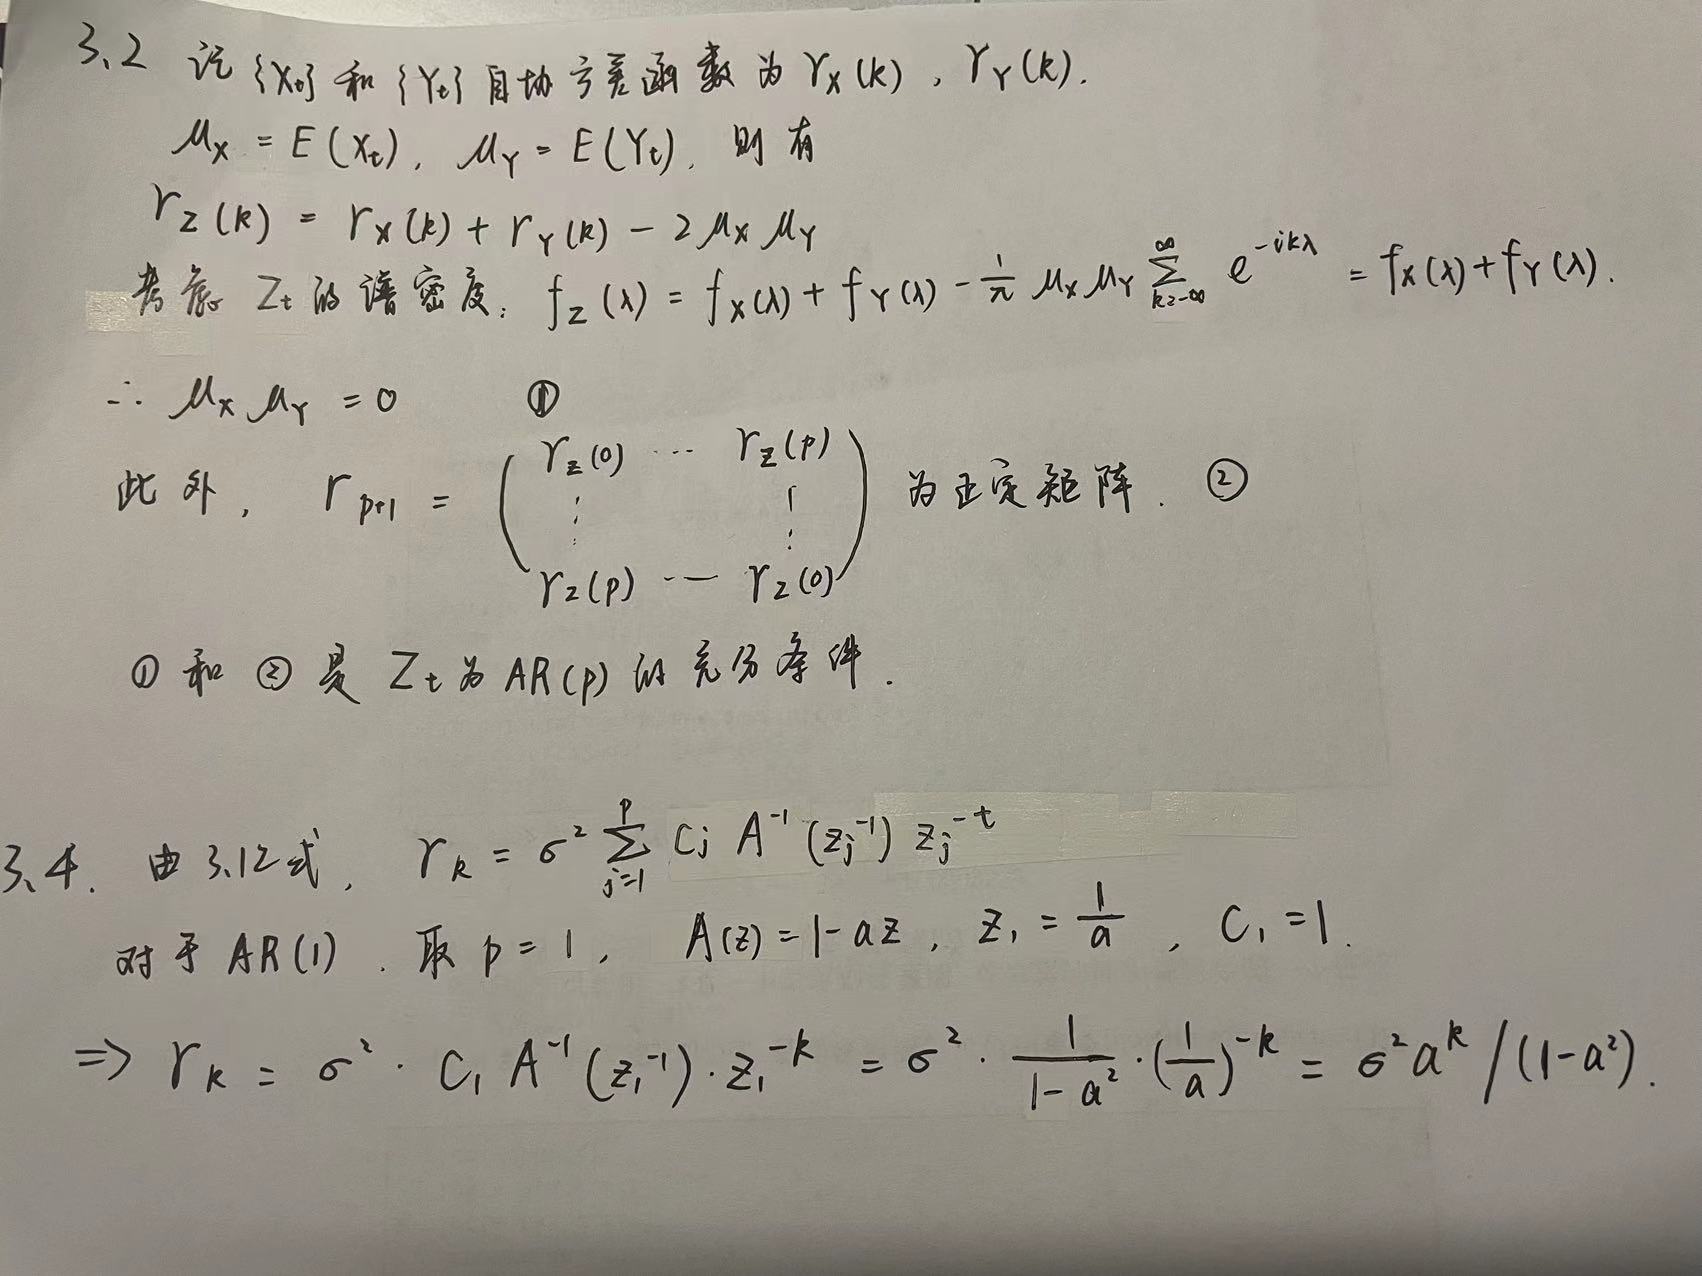 3.2 记 {Xt} 和 {Yt} 自协方差函数为 γX(k), γY(k).
μX = E(Xt), μY = E(Yt), 则有
γZ(k) = γX(k) + γY(k) − 2μXμY
考虑 Zt 的谱密度: fZ(λ) = fX(λ) + fY(λ) − 1/π μXμY ∑_{k=-∞}^{∞} e^{-ikλ} = fX(λ) + fY(λ).
∴ μXμY = 0 ①
此外, Γp+1 = ( γZ(0) ⋯ γZ(p) ⋮ ⋮ γZ(p) ⋯ γZ(0) ) 为正定矩阵. ②
① 和 ② 是 Zt 为 AR(p) 的充分条件.
3.4. 由 3.12式, γk = σ² ∑_{j=1}^{p} Cj A^{-1}(zj^{-1}) zj^{-t}
对于 AR(1). 取 p = 1, A(z) = 1−az, z1 = 1/a, C1 = 1.
=> γk = σ² · C1 A^{-1}(z1^{-1}) · z1^{-k} = σ² · 1/(1−a²) · (1/a)^{-k} = σ²a^k / (1−a²).